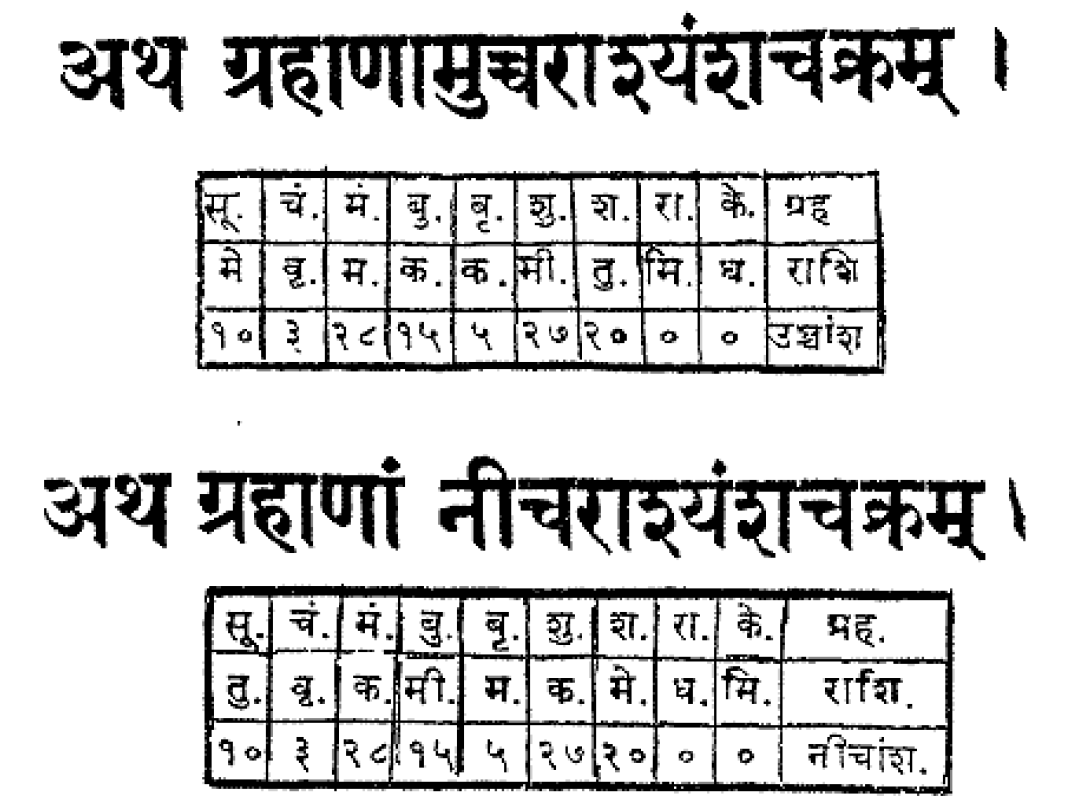 अथ ग्रहाणामुच्चराश्यंशचक्रम् ।
सू. चं. मं. बु. बृ. शु. श. रा. के. ग्रह
मे वृ. म. क. क. मी. तु. मि. ध. राशि
१० ३ २८ १५ ५ २७ २० ० ० उच्चांश
अथ ग्रहाणां नीचराश्यंशचक्रम् ।
सू. चं. मं. बु. बृ. शु. श. रा. के. ग्रह.
तु. वृ. क. मी. म. क. मे. ध. मि. राशि.
१० ३ २८ १५ ५ २७ २० ० ० नीचांश.